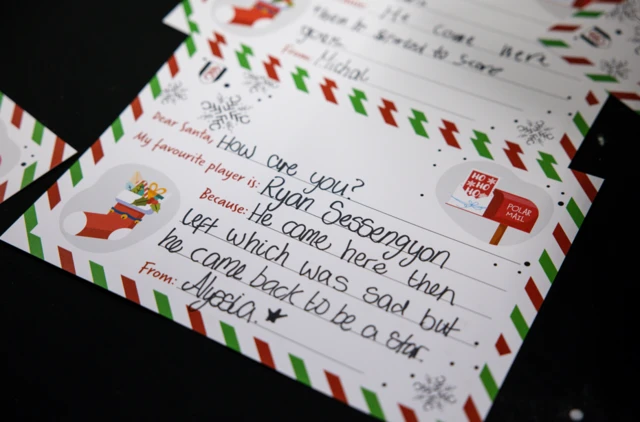 He come here
then to
to score
goals
From: Michal
Dear Santa, How are you?
My favourite player is: Ryan Sessengyon
Because: He came here then
left which was sad but
he came back to be a star.
From: Alyssia.
HO
HO
HO
POLAR
MAIL